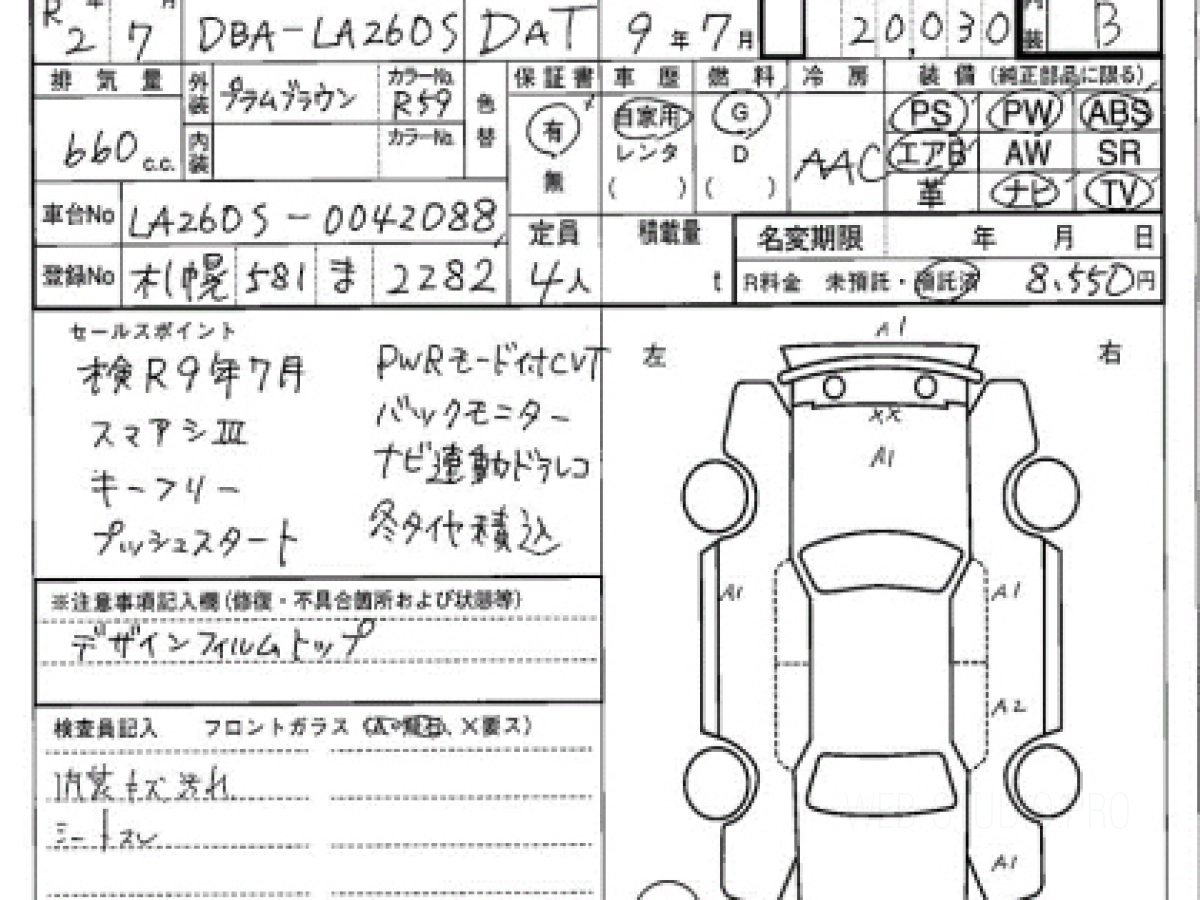 R 年 月
2 7 DBA-LA260S DAT 9年7月 20,030 内装 B
排気量 外装 プラムブラウン カラーNo. R59 色替 保証書 車歴 燃料 冷房 装備(純正部品に限る)
660 c.c. 内装 カラーNo. 有 自家用 G AAC PS PW ABS
無 レンタ D エアB AW SR
( ) ( ) 革 ナビ TV
車台No LA260S-0042088 定員 積載量 名変期限 年 月 日
登録No 札幌 581 ま 2282 4人 t R料金 未預託・預託済 8,550円
セールスポイント
検R9年7月 PWRモード付CVT
スマアシIII バックモニター
キーフリー ナビ連動ドラレコ
プッシュスタート 冬タイヤ積込
※注意事項記入欄(修復・不具合箇所および状態等)
デザインフィルムトップ
検査員記入 フロントガラス(A・飛石、×要ス)
内装キズ汚れ
シートスレ
A1
左 右
XX
A1
A1 A1
A2
A1